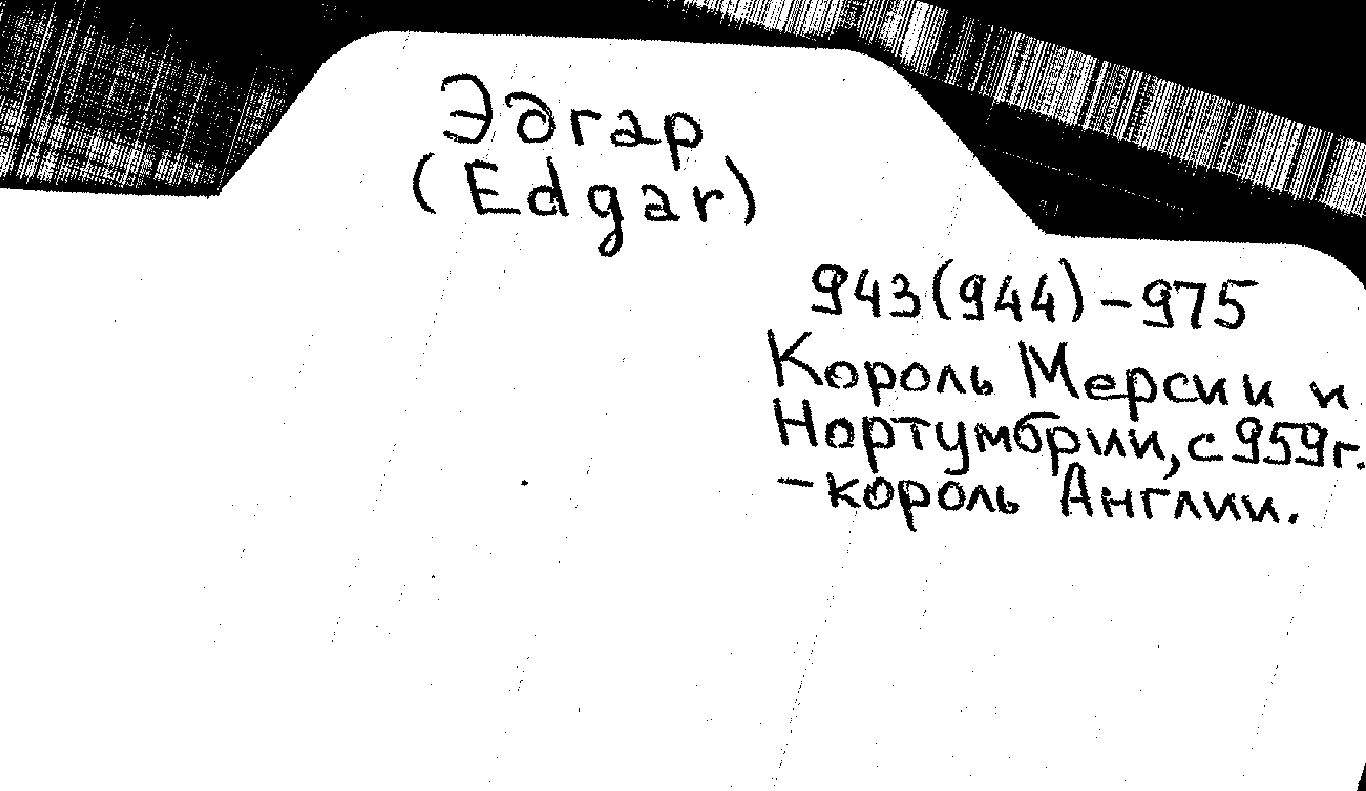 Эдгар
(Edgar)
943(944)-975
Король Мерсии и
Нортумбрии, с 959г.
-король Англии.